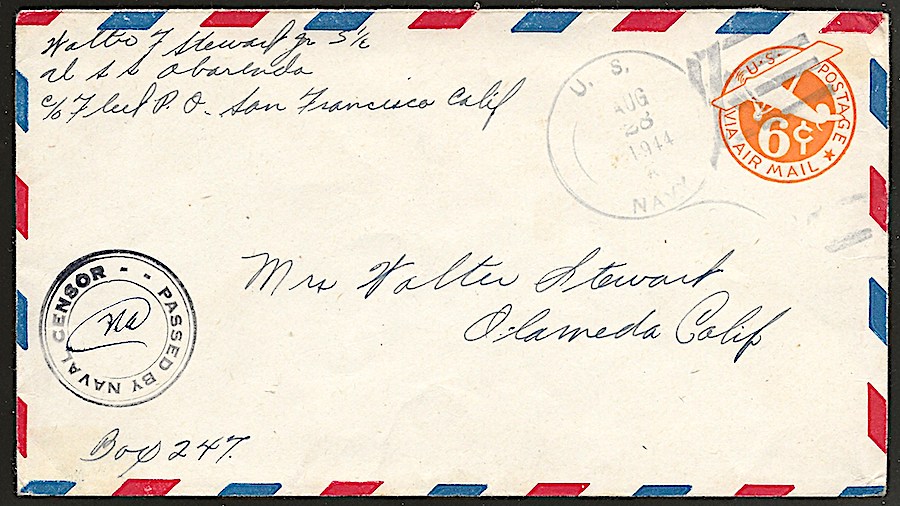 Walter F Stewart Jr S 1/c
U S S Abarenda
c/o Fleet P. O. San Francisco Calif
U. S.
AUG
28
1944
NAVY
U.S. POSTAGE
VIA AIR MAIL
6¢
PASSED BY NAVAL CENSOR
Mrs Walter Stewart
Alameda Calif
Box 247.